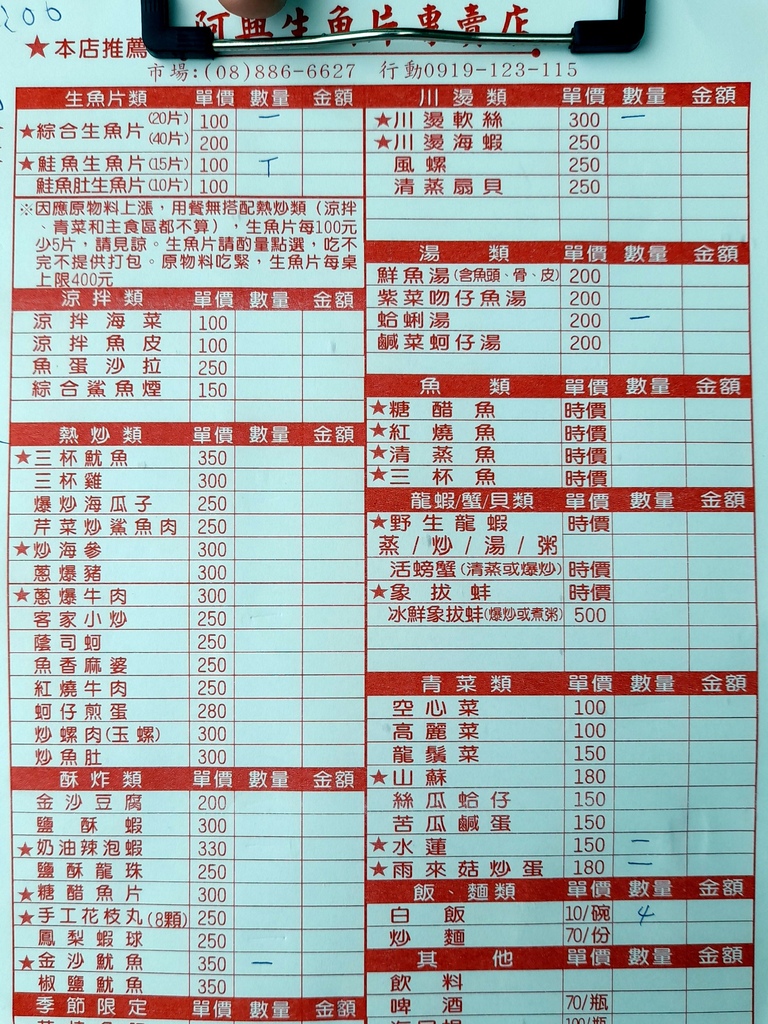 206
阿興生魚片專賣店
★本店推薦
市場:(08)886-6627 行動0919-123-115
生魚片類 單價 數量 金額
★綜合生魚片 (20片) 100 一
(40片) 200
★鮭魚生魚片(15片) 100 T
鮭魚肚生魚片(10片) 100
※因應原物料上漲，用餐無搭配熱炒類（涼拌
、青菜和主食區都不算），生魚片每100元
少5片，請見諒。生魚片請酌量點選，吃不
完不提供打包。原物料吃緊，生魚片每桌
上限400元
涼拌類 單價 數量 金額
涼拌海菜 100
涼拌魚皮 100
魚蛋沙拉 250
綜合鯊魚煙 150
熱炒類 單價 數量 金額
★三杯魷魚 350
三杯雞 300
爆炒海瓜子 250
芹菜炒鯊魚肉 250
★炒海參 300
蔥爆豬 300
★蔥爆牛肉 300
客家小炒 250
蔭司蚵 250
魚香麻婆 250
紅燒牛肉 250
蚵仔煎蛋 280
炒螺肉(玉螺) 300
炒魚肚 300
酥炸類 單價 數量 金額
金沙豆腐 200
鹽酥蝦 300
★奶油辣泡蝦 330
鹽酥龍珠 250
★糖醋魚片 300
★手工花枝丸(8顆) 250
鳳梨蝦球 250
★金沙魷魚 350 一
椒鹽魷魚 350
季節限定 單價 數量 金額
川燙類 單價 數量 金額
★川燙軟絲 300 一
★川燙海蝦 250
風螺 250
清蒸扇貝 250
湯類 單價 數量 金額
鮮魚湯(含魚頭、骨、皮) 200
紫菜吻仔魚湯 200
蛤蜊湯 200 一
鹹菜蚵仔湯 200
魚類 單價 數量 金額
★糖醋魚 時價
★紅燒魚 時價
★清蒸魚 時價
★三杯魚 時價
龍蝦/蟹/貝類 單價 數量 金額
★野生龍蝦 時價
蒸/炒/湯/粥
活螃蟹(清蒸或爆炒) 時價
★象拔蚌 時價
冰鮮象拔蚌(爆炒或煮粥) 500
青菜類 單價 數量 金額
空心菜 100
高麗菜 100
龍鬚菜 150
★山蘇 180
絲瓜蛤仔 150
苦瓜鹹蛋 150
★水蓮 150 一
★雨來菇炒蛋 180 一
飯、麵類 單價 數量 金額
白飯 10/碗 4
炒麵 70/份
其他 單價 數量 金額
飲料
啤酒 70/瓶